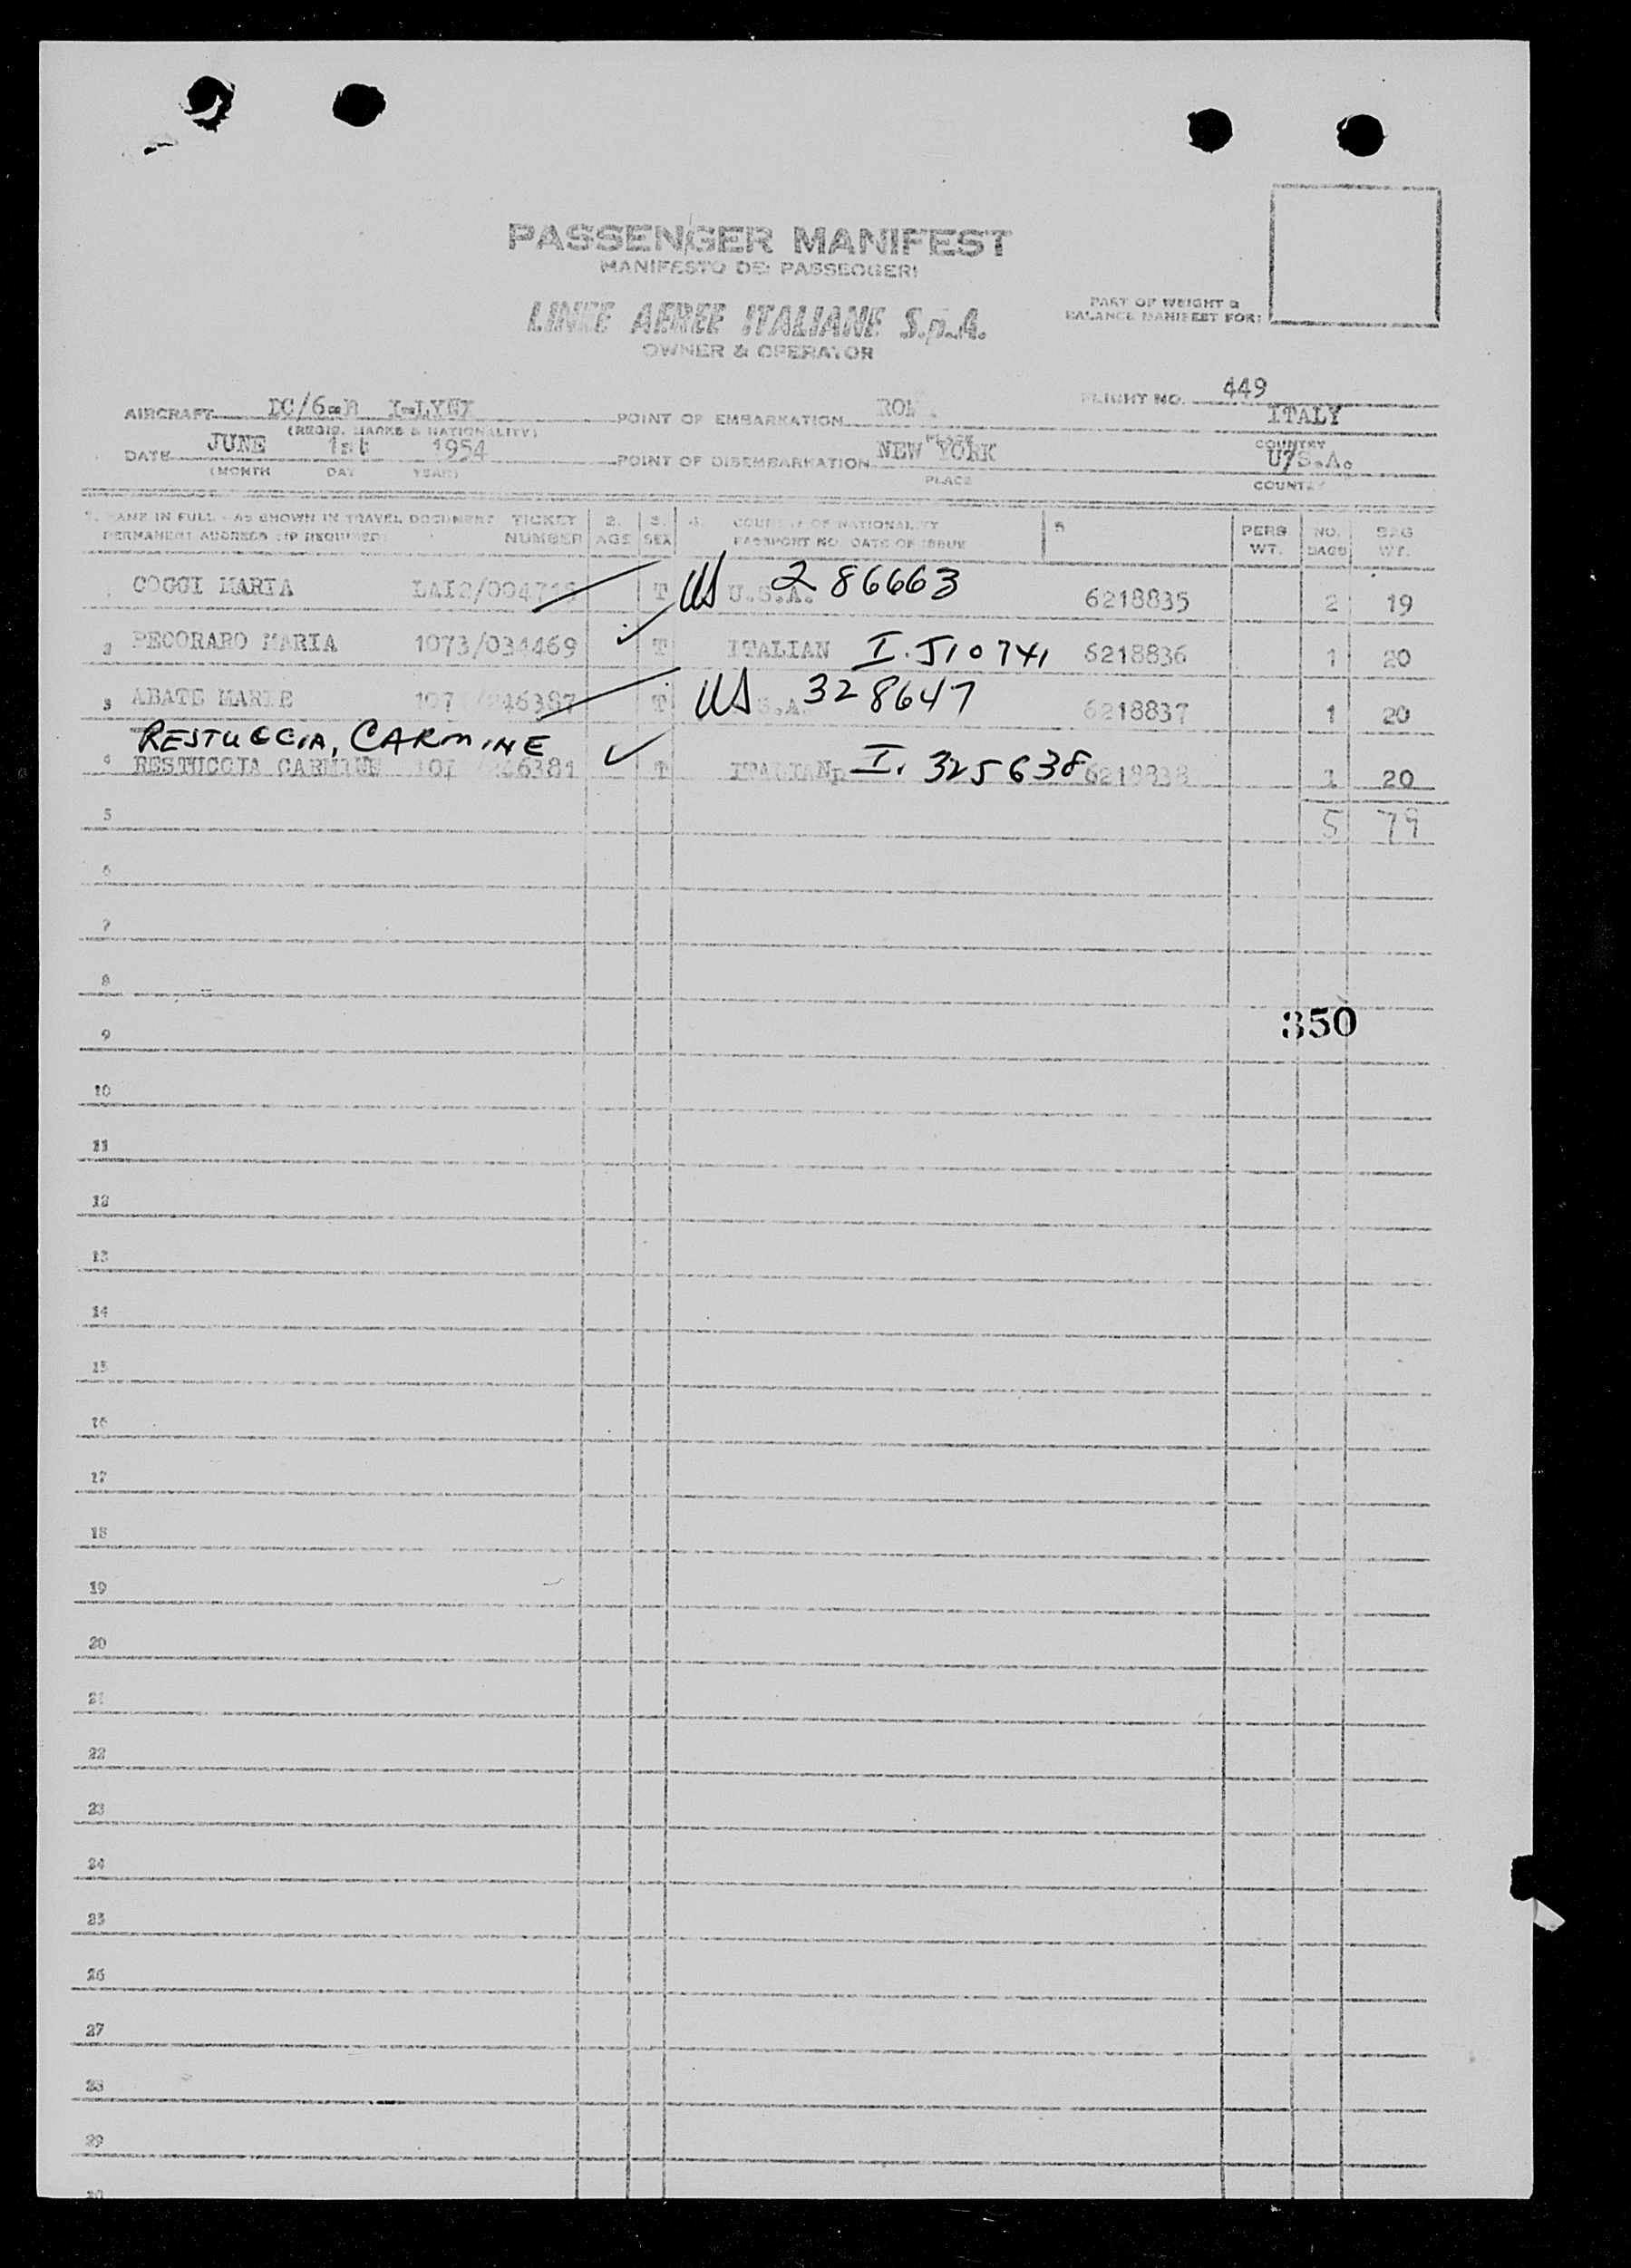 PASSENGER MANIFEST
MANIFESTO DEI PASSEGGERI
LINEE AEREE ITALIANE S.p.A.
OWNER & OPERATOR
PART OF WEIGHT &
BALANCE MANIFEST FOR:
AIRCRAFT DC/6-B POINT OF EMBARKATION FLIGHT NO. 449
ITALY
(REGIS. MARKS & NATIONALITY) PLACE COUNTRY
DATE JUNE 1st 1954 POINT OF DISEMBARKATION NEW YORK U/S.A.
(MONTH DAY YEAR) PLACE COUNTRY
1. NAME IN FULL - AS SHOWN IN TRAVEL DOCUMENT TICKET 2. 3. 4. COUNTRY OF NATIONALITY 5 PERS NO. BAG
PERMANENT ADDRESS (IF REQUIRED) NUMBER AGE SEX PASSPORT NO. DATE OF ISSUE WT. BAGS WT.
COGGI MARIA US U.S.A. 286663 6218835 2 19
2 PECORARO MARIA 1073/034469 ITALIAN I. 510741 6218836 1 20
3 ABATE MARIE US 328647 6218837 1 20
RESTUCCIA, CARMINE
4 RESTUCCIA CARMINE ITALIAN I. 325638 6218838 1 20
5 5 79
6
7
8
350
9
10
11
12
13
14
15
16
17
18
19
20
21
22
23
24
25
26
27
28
29